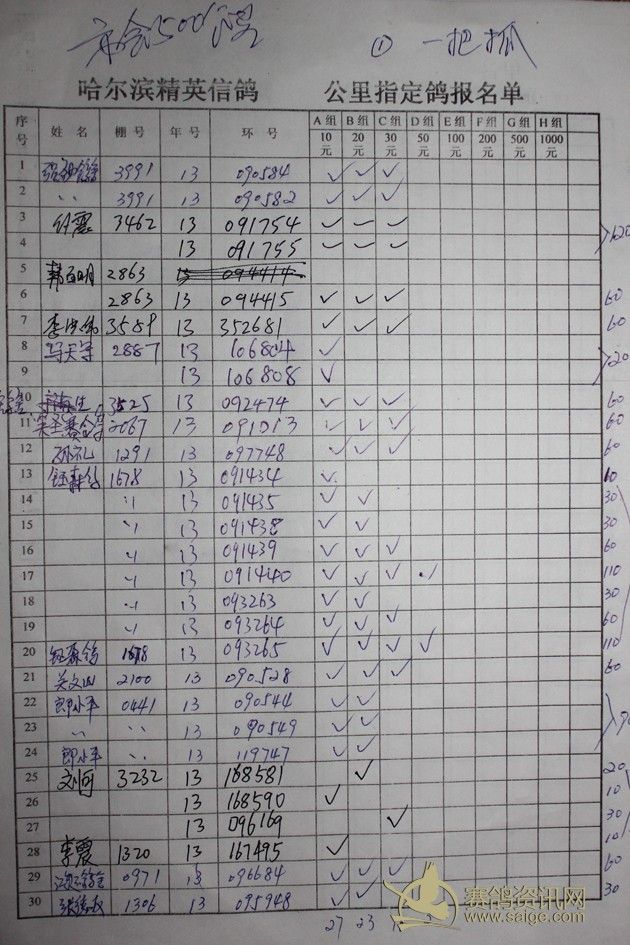 ① 一把抓
哈尔滨精英信鸽 公里指定鸽报名单
序号 姓名 棚号 年号 环号 A组 10元 B组 20元 C组 30元 D组 50元 E组 100元 F组 200元 G组 500元 H组 1000元
1 3991 13 090584 ✓ ✓ ✓
2 〃 3991 13 090582 ✓ ✓ ✓
3 3462 13 091754 ✓ ✓ ✓
4 13 091755 ✓ ✓ ✓ 120
5 2863 13 094414
6 2863 13 094415 ✓ ✓ ✓ 60
7 3589 13 352681 ✓ ✓ ✓ 60
8 马天宇 2887 13 106804 ✓
9 13 106808 ✓ 20
10 3525 13 092474 ✓ ✓ ✓ 60
11 13 091013 ✓ ✓ ✓ 60
12 孙礼 1291 13 097748 ✓ ✓ ✓ 60
13 1678 13 091434 ✓ 10
14 〃 13 091435 ✓ ✓ 30
15 〃 13 091438 ✓ ✓ 30
16 〃 13 091439 ✓ ✓ ✓ 60
17 〃 13 091440 ✓ ✓ ✓ ✓ 110
18 〃 13 093263 ✓ ✓ 30
19 〃 13 093264 ✓ ✓ ✓ 60
20 1678 13 093265 ✓ ✓ ✓ ✓ 110
21 关文山 2100 13 090528 ✓ ✓ ✓ 60
22 郎小平 0441 13 090544 ✓ ✓
23 〃 〃 13 090549 ✓ ✓ 90
24 郎小平 〃 13 119747 ✓ ✓
25 刘阿 3232 13 168581 ✓ 20
26 13 168590 ✓ 10
27 13 096169 ✓ 30
28 李震 1320 13 167495 ✓ 10
29 0971 13 096684 ✓ ✓ ✓ 60
30 1306 13 095948 ✓ ✓ 30
27 23
赛鸽资讯网
www.saige.com